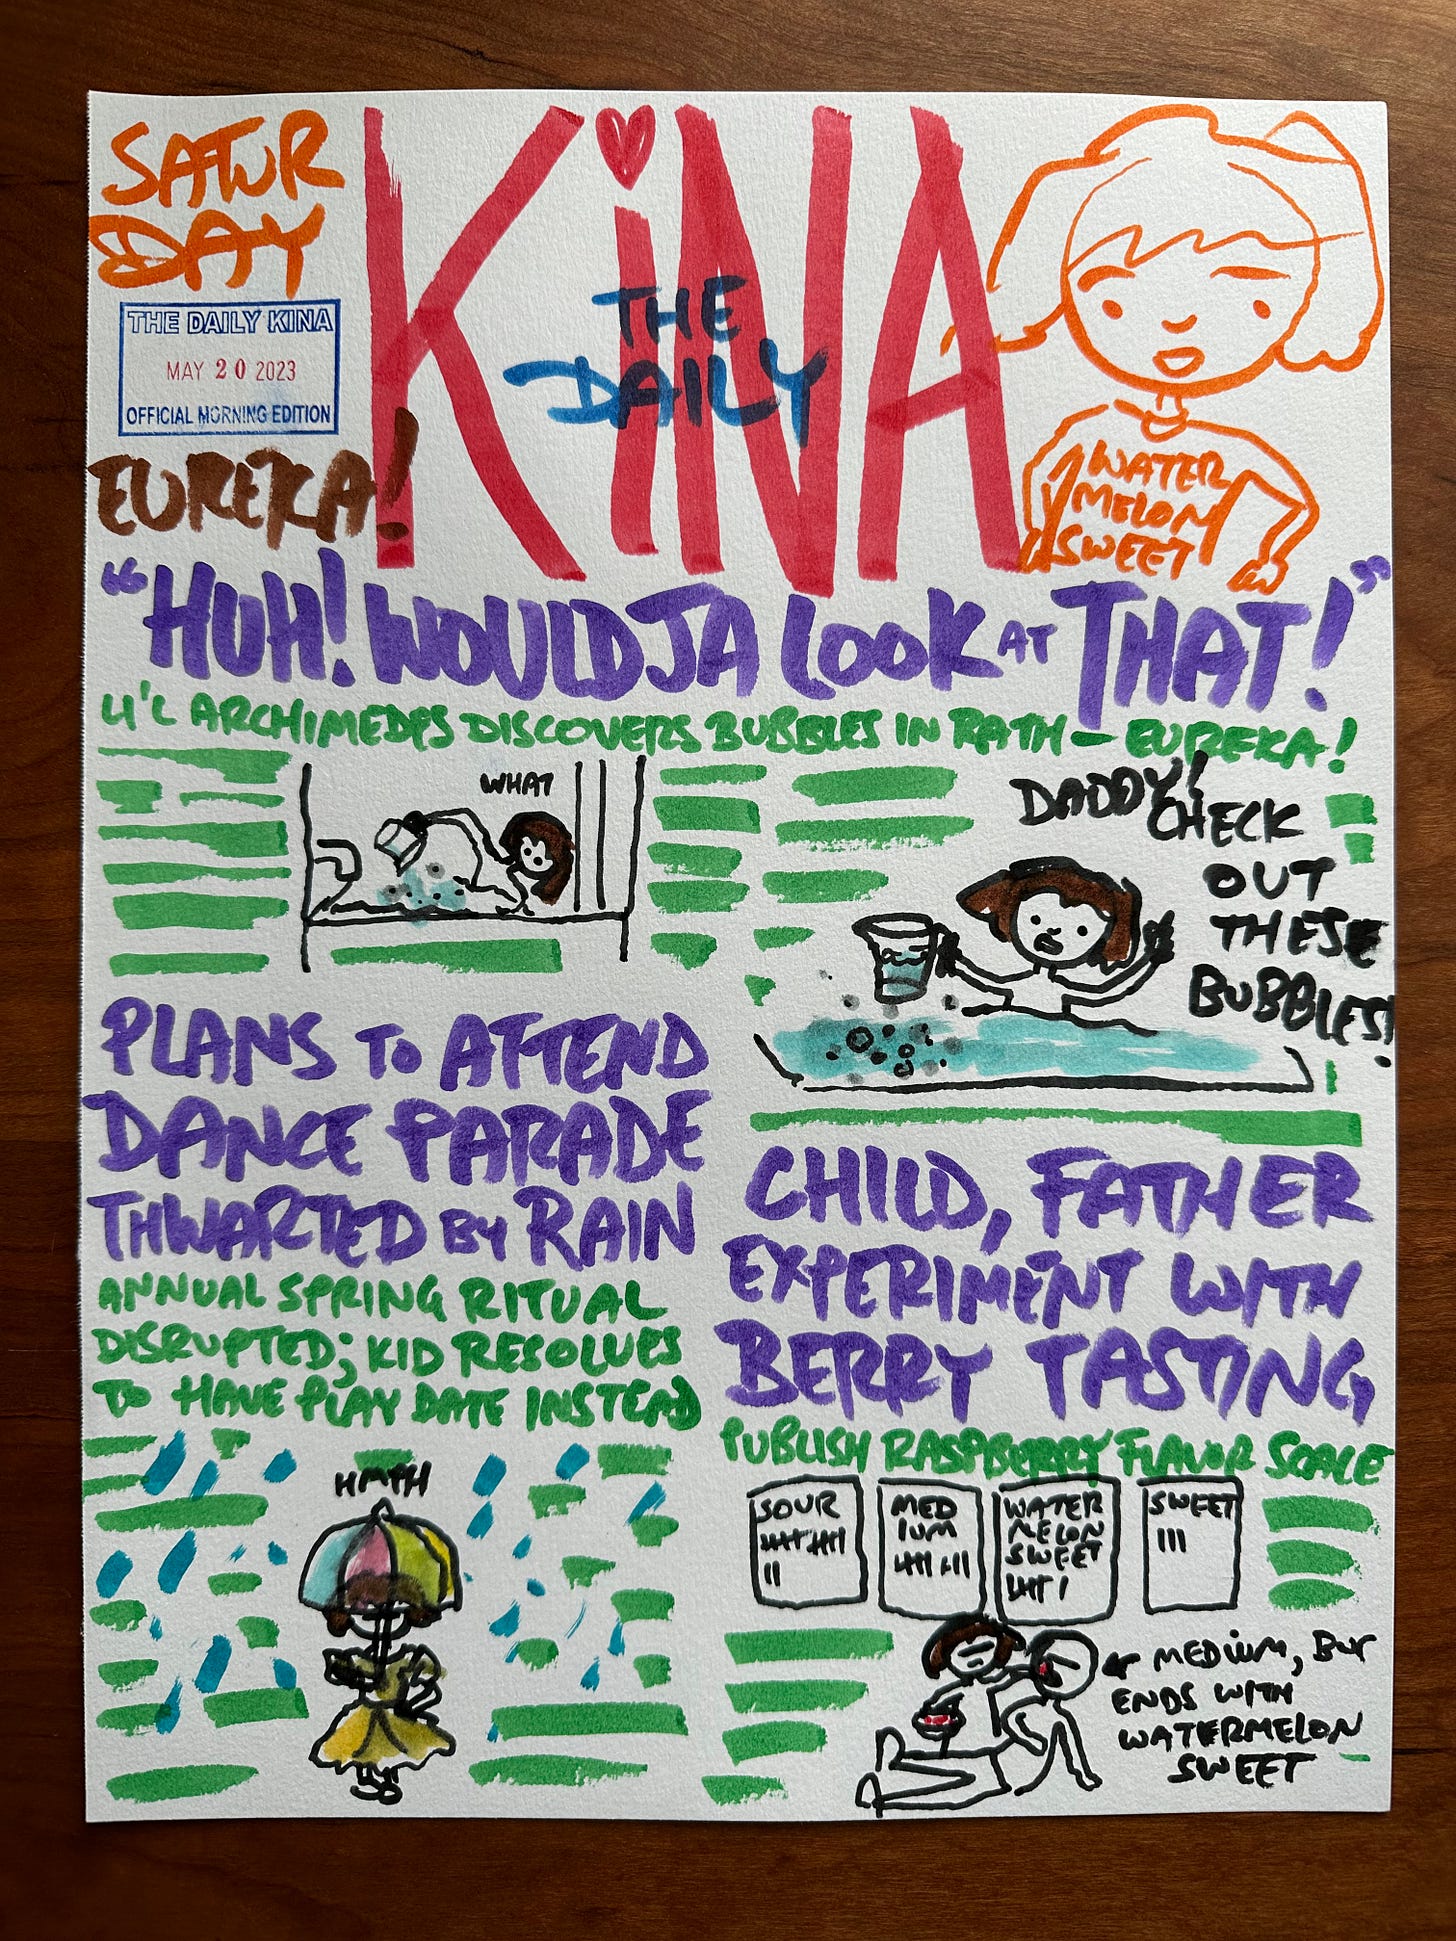 SATUR
DAY
THE DAILY KINA
MAY 20 2023
OFFICIAL MORNING EDITION
EUREKA!
KiNA
THE
DAILY
WATER
MELON
SWEET
"HUH! WOULDJA LOOK AT THAT!"
LI'L ARCHIMEDES DISCOVERS BUBBLES IN BATH — EUREKA!
WHAT
DADDY!
CHECK
OUT
THESE
BUBBLES!
PLANS TO ATTEND
DANCE PARADE
THWARTED BY RAIN
ANNUAL SPRING RITUAL
DISRUPTED; KID RESOLVES
TO HAVE PLAY DATE INSTEAD
HMPH
CHILD, FATHER
EXPERIMENT WITH
BERRY TASTING
PUBLISH RASPBERRY FLAVOR SCALE
SOUR
MED
IUM
WATER
MELON
SWEET
SWEET
← MEDIUM, BUT
ENDS WITH
WATERMELON
SWEET